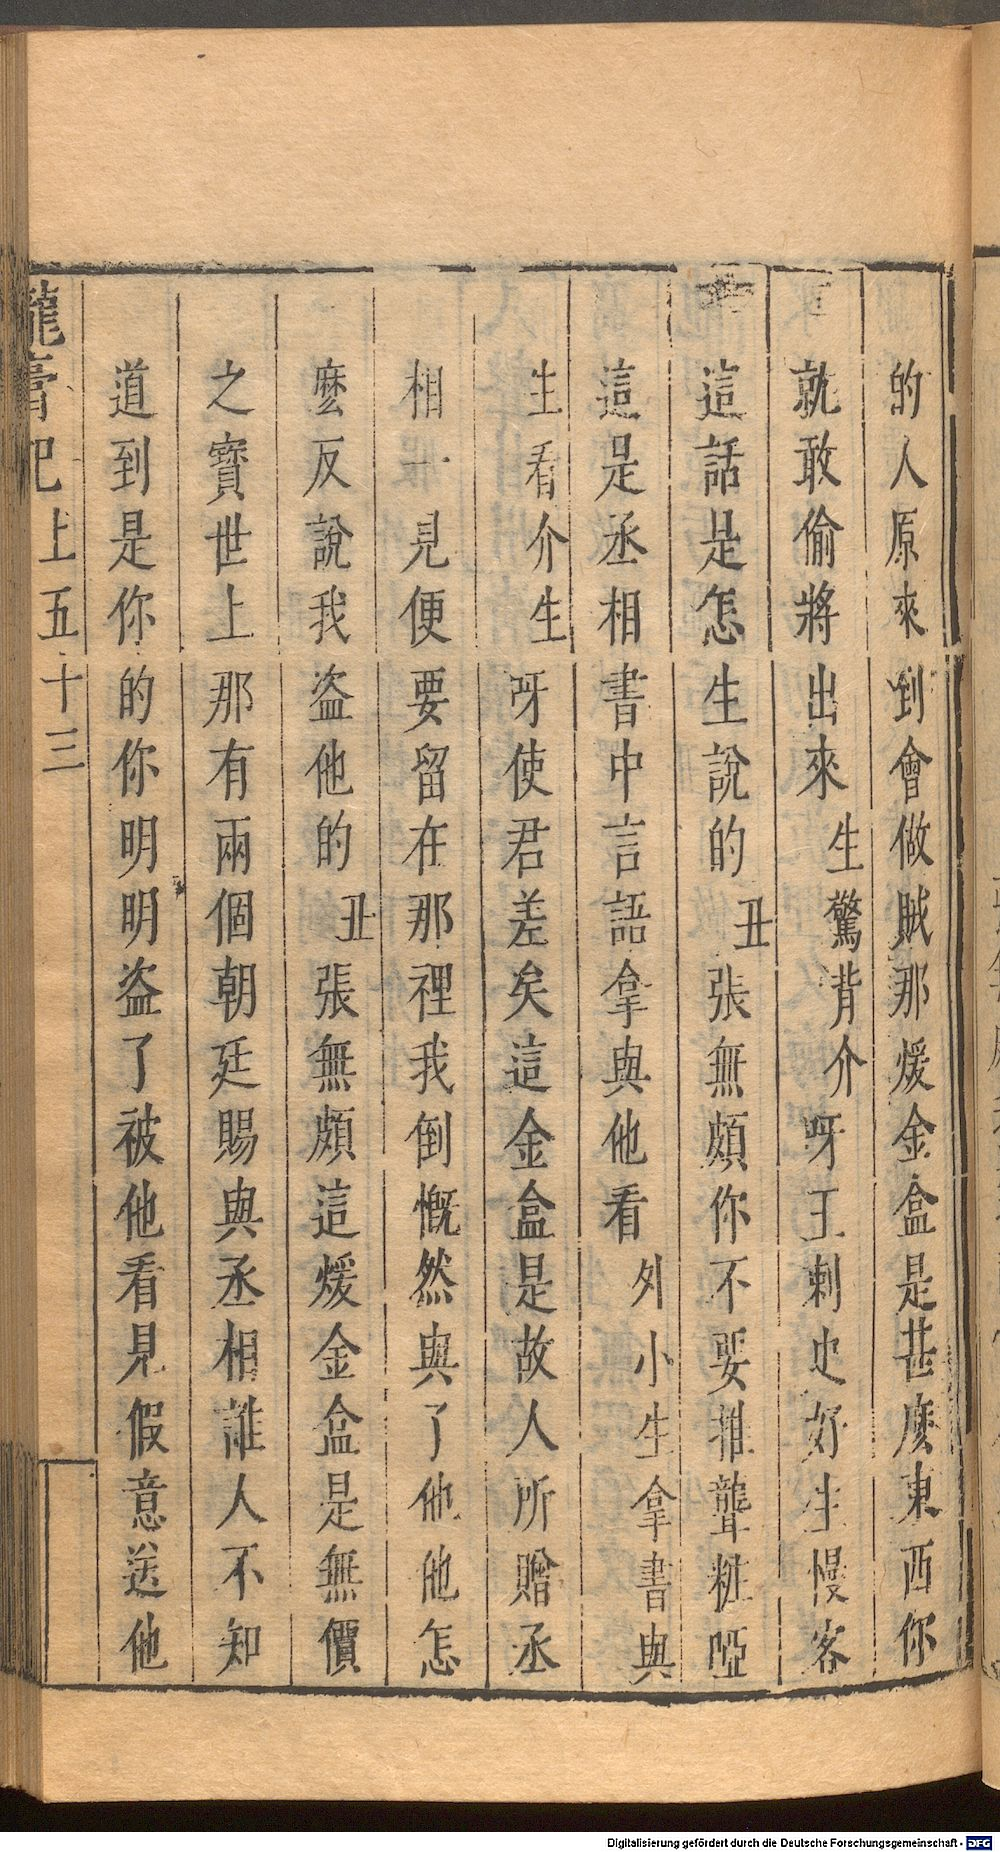 的人原來到會做賊那煖金盒是甚麼東西你
就敢偷將出來生驚背介呀王刺史好生慢客
這話是怎生說的丑張無頗你不要推聾粧啞
這是丞相書中言語拿與他看外小生拿書與
生看介生呀使君差矣這金盒是故人所贈丞
相一見便要留在那裡我倒慨然與了他他怎
麼反說我盜他的丑張無頗這煖金盒是無價
之寳世上那有兩個朝廷賜與丞相誰人不知
道到是你的你明明盜了被他看見假意送他
龍膏記上五十三
Digitalisierung gefördert durch die Deutsche Forschungsgemeinschaft - DFG